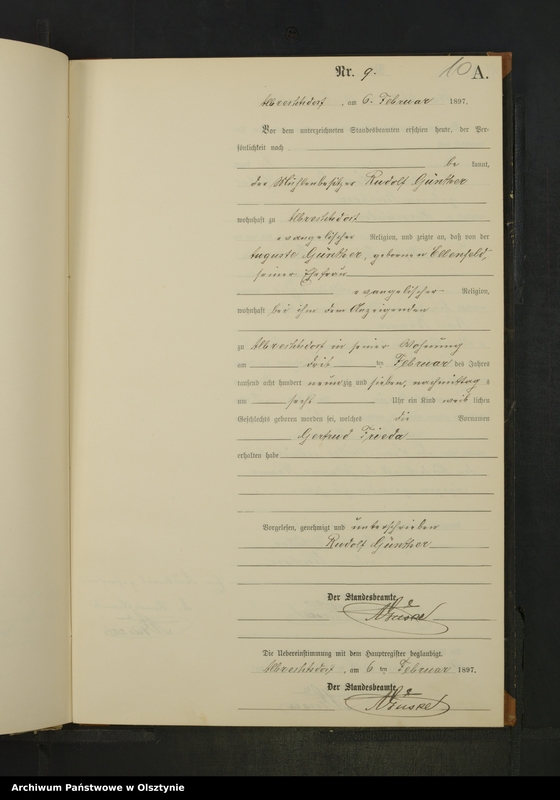 Nr. 9.
10 A.
Albrechtsdorf, am 6. Februar 1897.
Vor dem unterzeichneten Standesbeamten erschien heute, der Per-
sönlichkeit nach
be kannt,
der Mühlenbesitzer Rudolf Günther
wohnhaft zu Albrechtsdorf
evangelischer Religion, und zeigte an, daß von der
Auguste Günther, geborenen Ellenfeld,
seiner Ehefrau
evangelischer Religion,
wohnhaft bei ihm dem Anzeigenden
zu Albrechtsdorf in seiner Wohnung
am drei ten Februar des Jahres
tausend acht hundert neunzig und sieben, nachmittag s
um sechs Uhr ein Kind weib lichen
Geschlechts geboren worden sei, welches die Vornamen
Gertrud Frieda
erhalten habe
Vorgelesen, genehmigt und unterschrieben
Rudolf Günther
Der Standesbeamte.
Die Uebereinstimmung mit dem Hauptregister beglaubigt.
Albrechtsdorf, am 6 ten Februar 1897.
Der Standesbeamte.
Archiwum Państwowe w Olsztynie